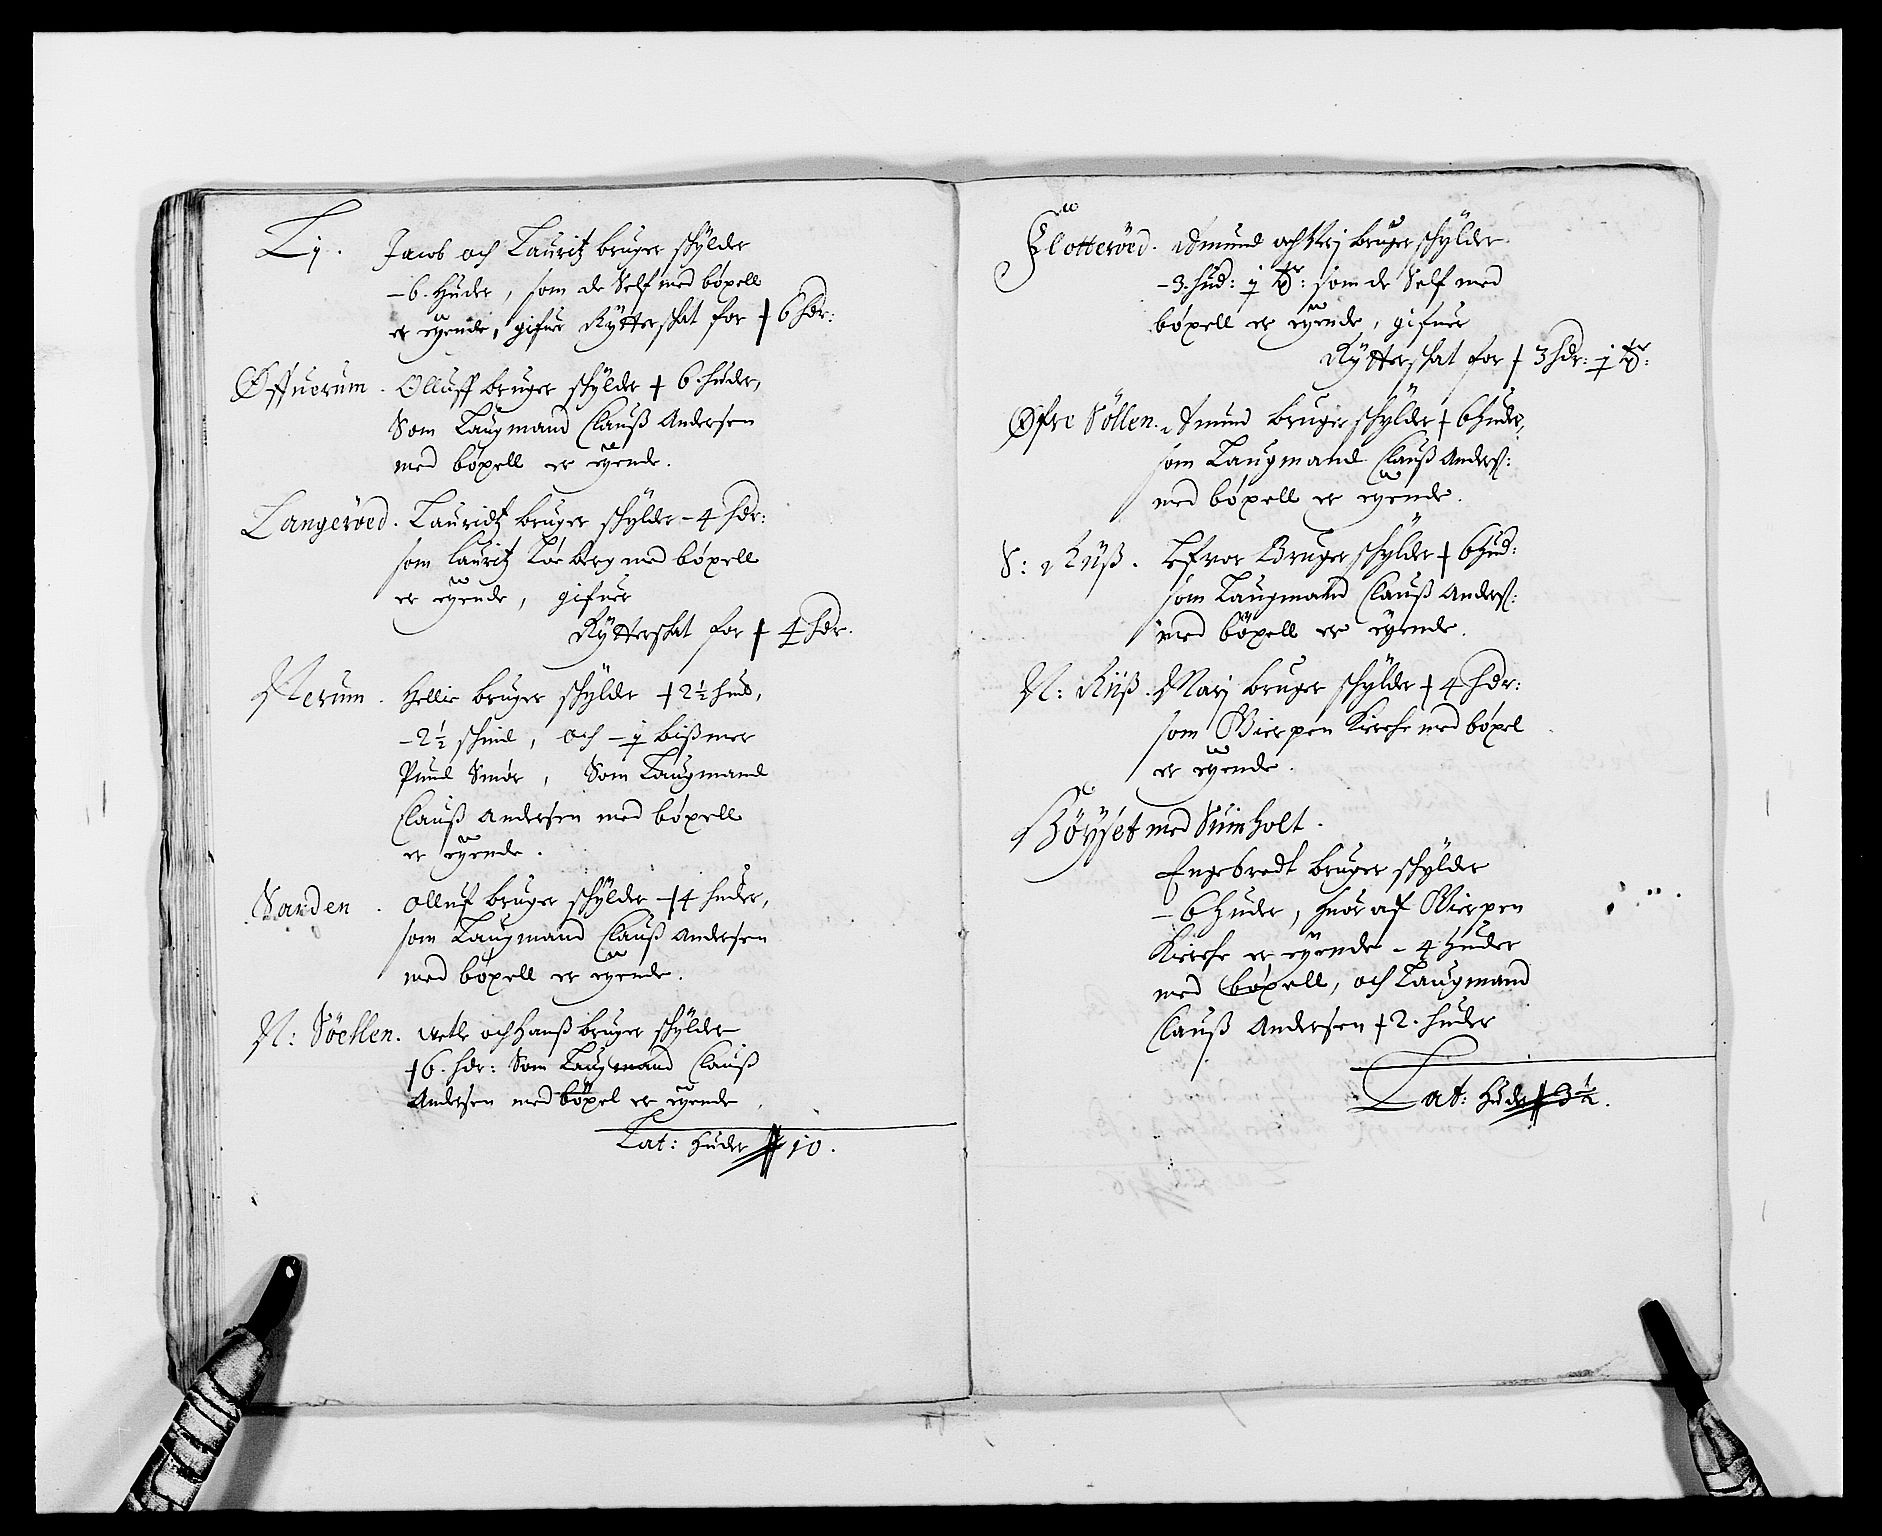 Ly. Jacob och Lauritz bruger schÿlder
– 6. Huder, som de Self med böxell
er eÿende, gifuer Rÿtterskat for † 6 hdr:
Øffuerum. Olluff bruger schÿlder † 6. huder,
Som Laugmand Clauß Andersen
med böxell er eÿende.
Langeröed. Lauridtz bruger schÿlder – 4 hdr:
som Lauritz med böxell
er eÿende, gifuer
Rÿtterskat for † 4 hdr.
Nerum. Hellie bruger schÿlder † 2½ hud,
– 2½ schind, och – j bißmer
Pund Smör, Som Laugmand
Clauß Andersen med böxell
er eÿende.
Sanden. Olluf bruger schÿlder – † 4 huder,
som Laugmand Clauß Andersen
med böxell er eÿende.
N: Söehlen. Aetle och Hanß bruger schÿlder
† 6. hdr: Som Laugmand Clauß
Andersen med böxel er eÿende
Lat: Huder 10.
Flotteröed. Amund och bruger schÿlder
– 3. hud: j som de Self med
böxell er eÿende, gifuer
Rÿtterskat for † 3 hdr: j
Øfre Söllen. Amund bruger schÿlder † 6 huder,
som Laugmand Clauß Anderß:
med böxell er eÿende.
S: Riiß. Lefvor Bruger schÿlder † 6 hud:
som Laugmand Clauß Anderß:
med böxell er eÿende.
N: Riiß. Marj bruger schÿlder † 4 hdr:
som Wierpen Kirche med böxel
er eÿende.
Böÿset med Suinholt.
Engebredt bruger schÿlder
– 6 Huder, huor af Wierpen
Kirche er eÿende – 4 Huder
med böxell, och Laugmand
Clauß Andersen † 2. huder
Lat: Huder 3½.